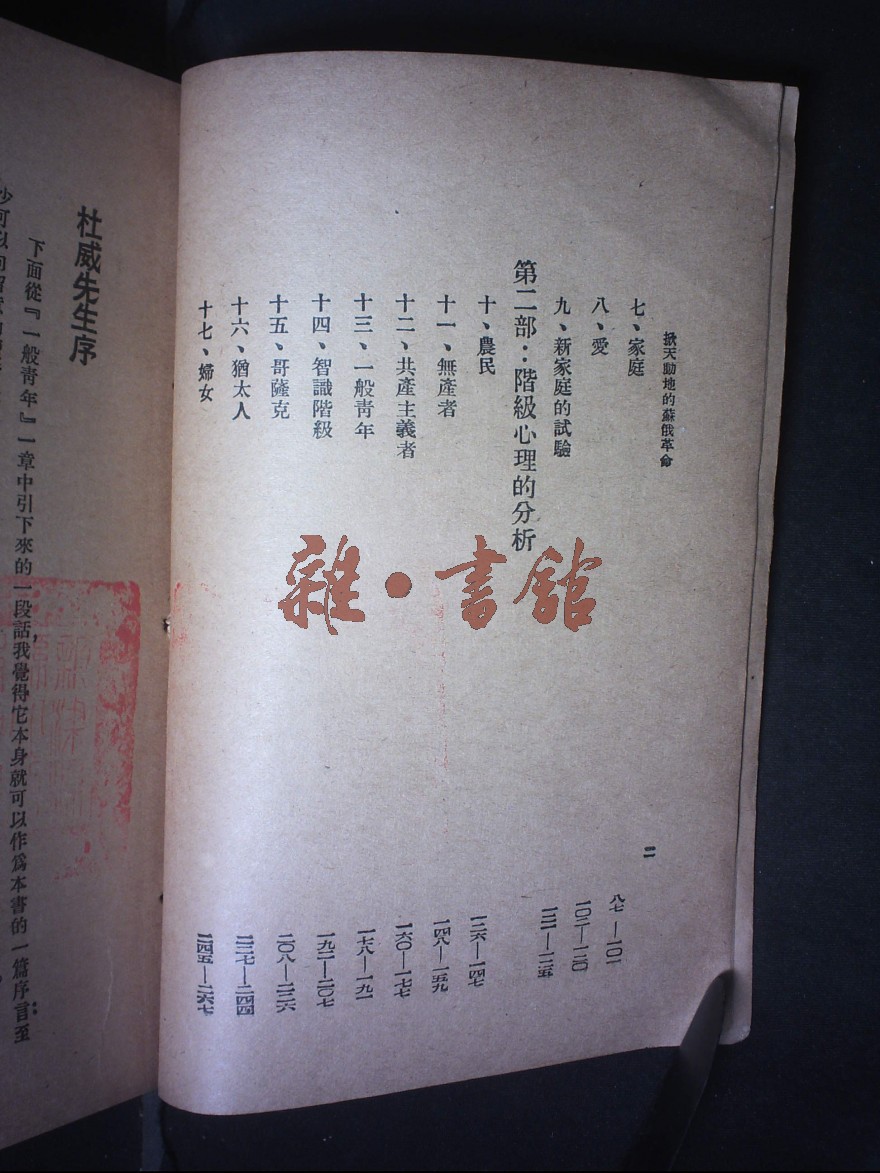 掀天動地的蘇俄革命
二
七、家庭
八七—一〇一
八、愛
一〇二—一二〇
九、新家庭的試驗
一二一—一二五
第二部：階級心理的分析
十、農民
一二六—一四七
十一、無產者
一四八—一五九
十二、共產主義者
一六〇—一七七
十三、一般青年
一七八—一九一
十四、智識階級
一九二—二〇七
十五、哥薩克
二〇八—二二六
十六、猶太人
二二七—二四四
十七、婦女
二四五—二六七
雜·書館
杜威先生序
下面從『一般青年』一章中引下來的一段話，我覺得它本身就可以作爲本書的一篇序言：至